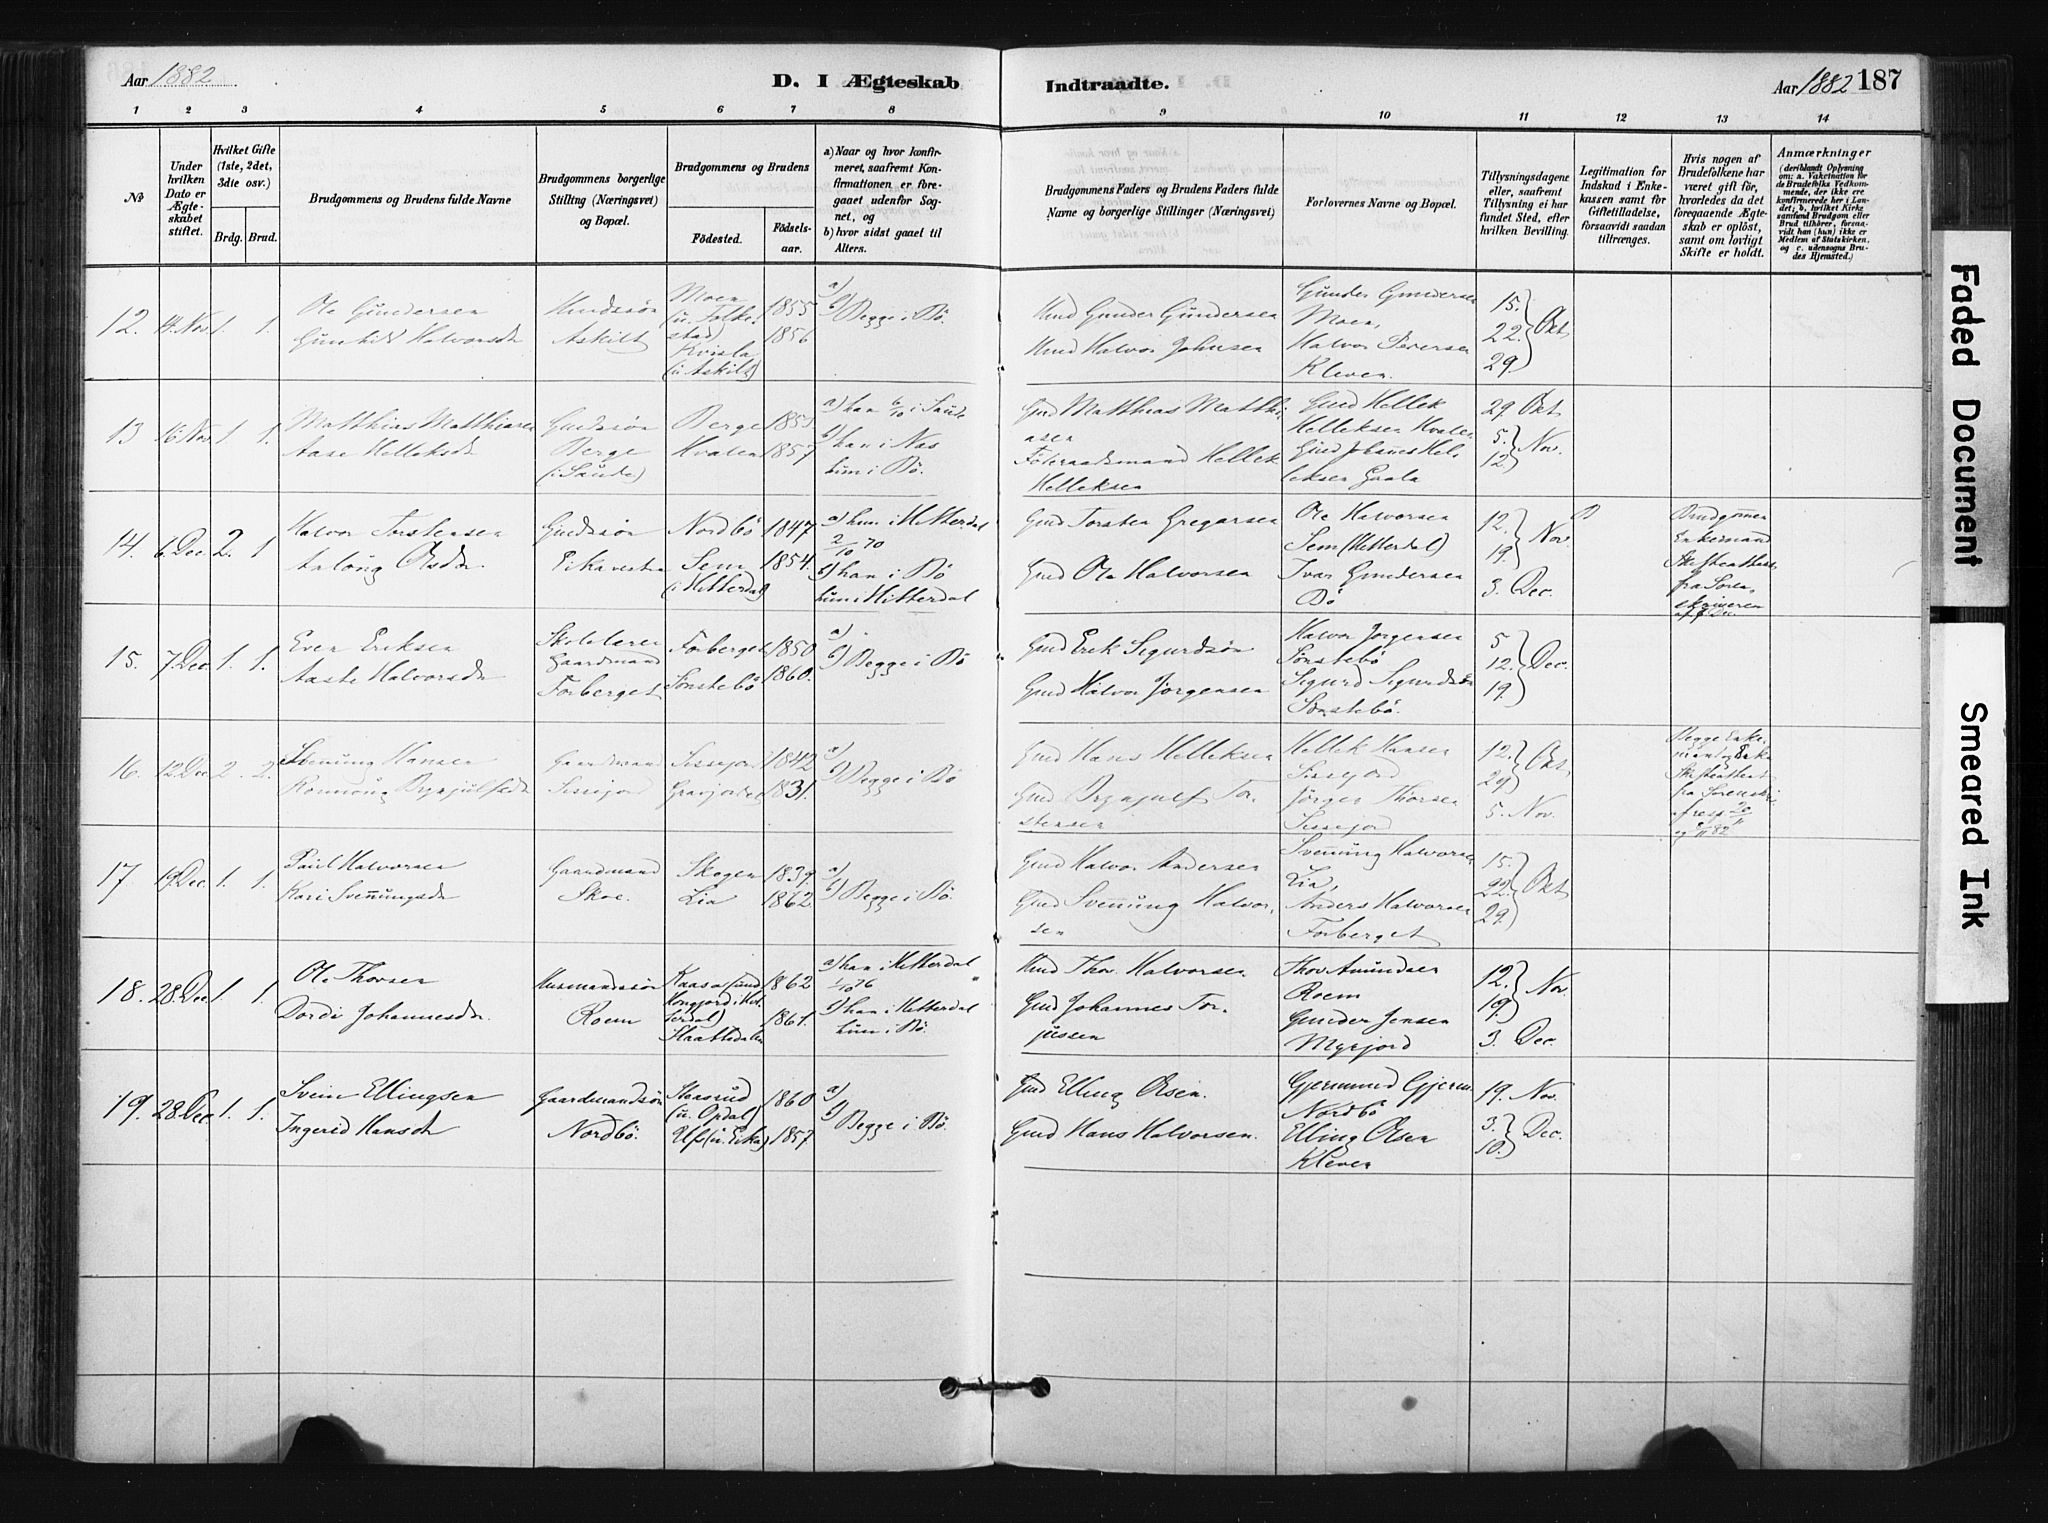 Aar 1882
D. I Ægteskab
Indtraadte.
Aar 1882 187
1 2 3 4 5 6 7 8 9 10 11 12 13 14
No
Under hvilken Dato er Ægteskabet stiftet.
Hvilket Gifte (1ste, 2det, 3die osv.)
Brdg. Brud.
Brudgommens og Brudens fulde Navne
Brudgommens borgerlige Stilling (Næringsvei) og Bopæl.
Brudgommens og Brudens
Fødested.
Fødselsaar.
a) Naar og hvor konfirmeret, saafremt Konfirmationen er foregaaet udenfor Sognet, og
b) hvor sidst gaaet til Alters.
Brudgommens Faders og Brudens Faders fulde Navne og borgerlige Stillinger (Næringsvei)
Forlovernes Navne og Bopæl.
Tillysningsdagene eller, saafremt Tillysning ei har fundet Sted, efter hvilken Bevilling.
Legitimation for Indskud i Enkekassen samt for Giftetilladelse, forsaavidt saadan tiltrænges.
Hvis nogen af Brudefolkene har været gift før, hvorledes da det foregaaende Ægteskab er opløst, samt om lovligt Skifte er holdt.
Anmærkninger
(deriblandt Oplysning om: a. Vakcination for de Brudefolks Vedkommende, der ikke ere konfirmerede her i Landet; b. hvilket Kirkesamfund Brudgom eller Brud tilhører, forsaavidt han (hun) ikke er Medlem af Statskirken, og c. udensogns Brudes Hjemsted.)
12. 14. Nov. 1. 1.
Ole Gundersen
Gunhild Halvorsdr
Askilt
Moen
1855
1856
a)
b) Begge i Bø.
Gunder Gundersen
Halvor Johnsen
Gunder Gundersen
Moen,
Halvor Pedersen
Kleven.
15.
22. Okt
29.
13 16 Nov. 1. 1.
Matthias Matthiasen
Aase Helleksdr
Gudssøn
Berge
(i Saude)
Berge 1855
Kvalen 1857
a) han 6/10 i Saude
b) han i Næs
hun i Bø.
Gmd Matthias Matthiasen
Føderaadsmand Hellek
Helleksen
Gmd Hellek
Helleksen Kvalen
29. Okt
5.
12 Nov.
14. 6. Dec. 2. 1
Halvor Torstensen
Aslaug Olsdr.
Eikavestre
Nordbø 1847
Sem 1854.
(i Hitterdal)
a) hun i Hitterdal
2/10 70
b) han i Bø
hun i Hitterdal
Gmd Torsten Gregarsen
Gmd Ole Halvorsen
Ole Halvorsen
Sem (Hitterdal)
Ivar Gundersen
Bø
12.
19. Nov.
3. Dec.
Brudgommen
Enkemand
Skifteattest
fra Sorenskriveren
15. 7. Dec. 1. 1.
Even Eriksen
Aaste Halvorsdr
Skolelærer
Gaardmand
Forberget
Forberget 1850
Sønstebø 1860.
a)
b) Begge i Bø
Gmd Erik Sigurdsøn
Gmd Halvor Jørgensen
Halvor Jørgensen
Sønstebø
Sigurd Sigurdsøn
Sønstebø.
5
12. Dec.
19.
16. 12 Dec 2. 2.
Svenung Hansen
Ronnoug Brynjulfsdr
Gaardmand
Sissejord
Sissejord 1842
Gravjordet 1831.
a)
b) Begge i Bø
Gmd Hans Helleksen
Gmd Brynjulf Torstensen
Hellek Hansen
Sissejord
Jørgen Thorsen
Sissejord
12.
29. Okt
5. Nov.
17. 19. Dec. 1. 1.
Paul Halvorsen
Kari Svennungsdr
Gaardmand
Skoe.
Skogen 1839.
Lia 1862
a)
b) Begge i Bø.
Gmd Halvor Andersen
Gmd Svennung Halvorsen
Svennung Halvorsen
Lia,
Anders Halvorsen
Forberget
15.
22. Okt
29.
18. 28. Dec. 1. 1.
Ole Thorsen
Dordi Johannesdr.
Husmandssøn
Roem
1862
1861.
a) han i Hitterdal
1/10 76
b) han i Hitterdal
hun i Bø.
Thor Halvorsen
Gmd Johannes Torjussen
Thov Amundsen
Roem
Gunder Jensen
Myrjord
12.
19. Nov.
3. Dec.
19. 28. Dec. 1. 1.
Svein Ellingsen
Ingerid Hansdr
Gaardmandssøn
Nordbø.
Staasrud 1860
(u. Opdal)
Ulf (u. Eika) 1857
a)
b) Begge i Bø.
Gmd Elling Olsen.
Gmd Hans Halvorsen.
Gjermund Gjerm.
Nordbø
Elling Olsen
Kleven
19. Nov.
3.
10. Dec.
Faded Document
Smeared Ink